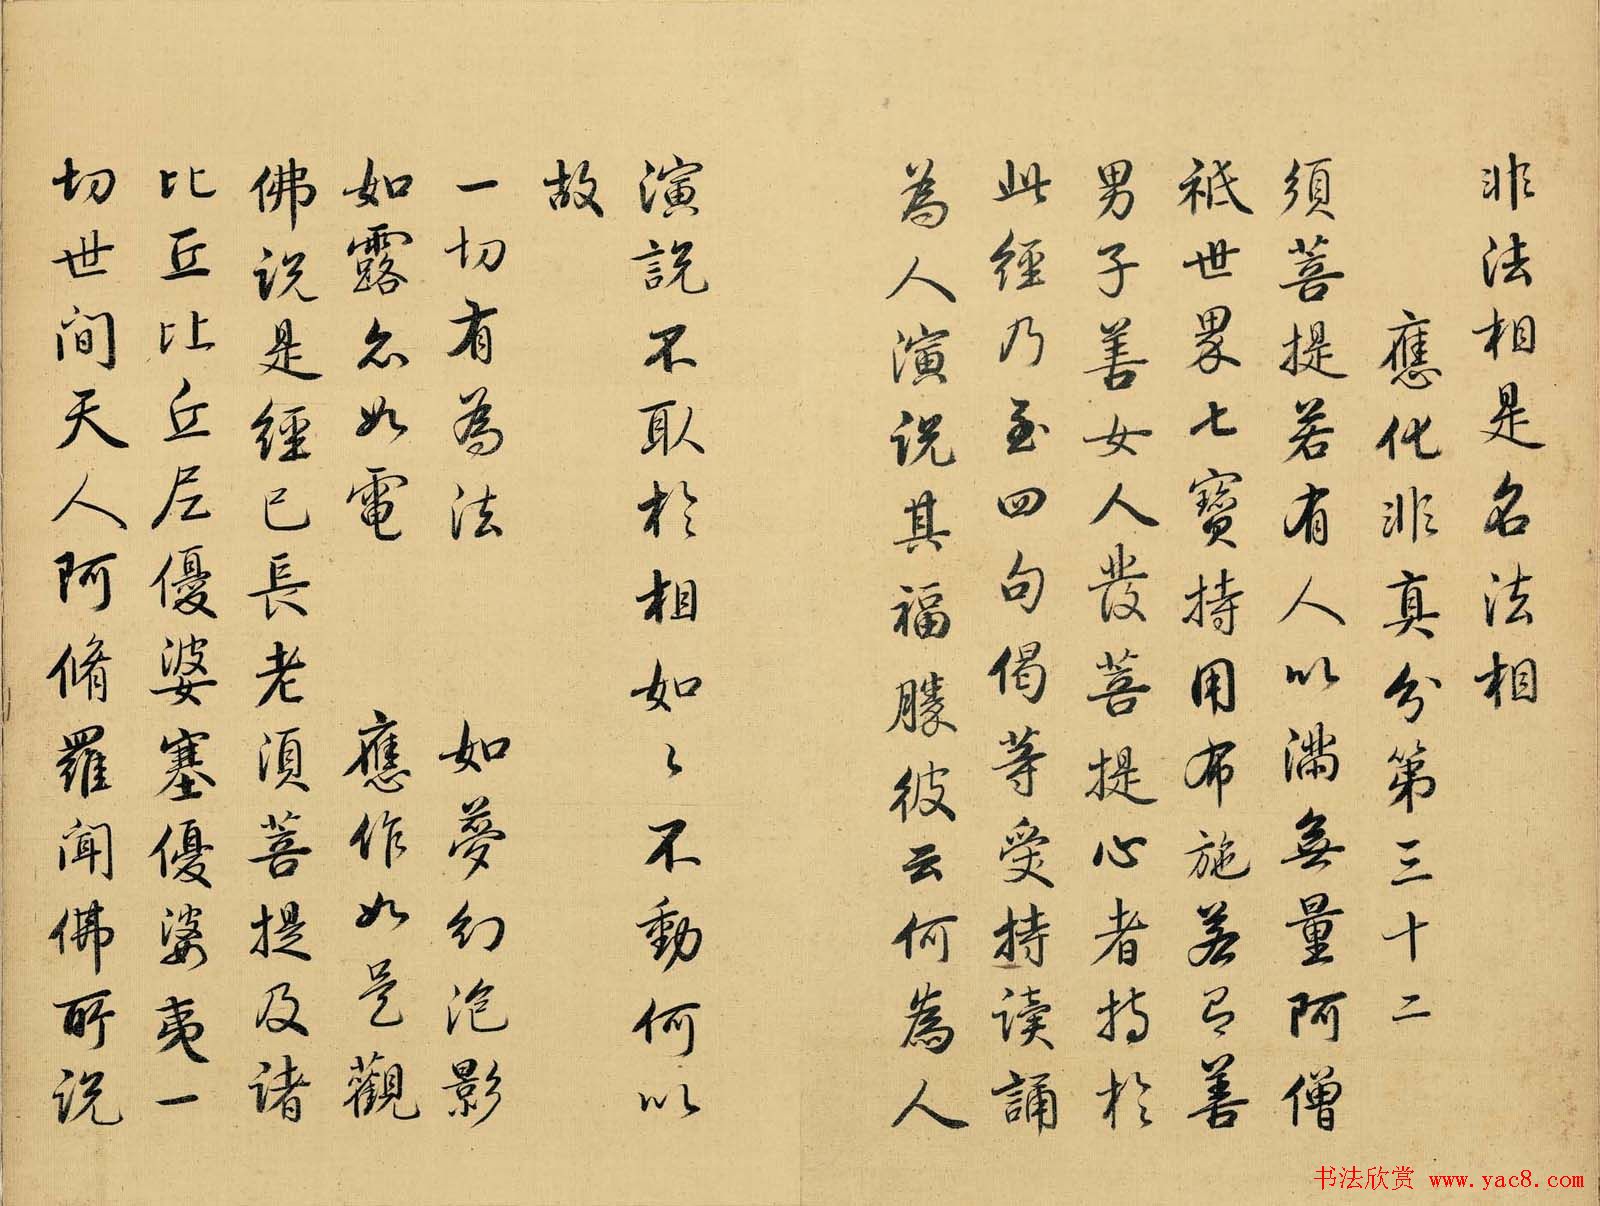 非法相是名法相
應化非真分第三十二
須菩提若有人以滿無量阿僧
祇世界七寶持用布施若有善
男子善女人發菩提心者持於
此經乃至四句偈等受持讀誦
為人演說其福勝彼云何為人
演說不取於相如〻不動何以
故
一切有為法 如夢幻泡影
如露亦如電 應作如是觀
佛說是經已長老須菩提及諸
比丘比丘尼優婆塞優婆夷一
切世間天人阿脩羅聞佛所說
书法欣赏 www.yac8.com